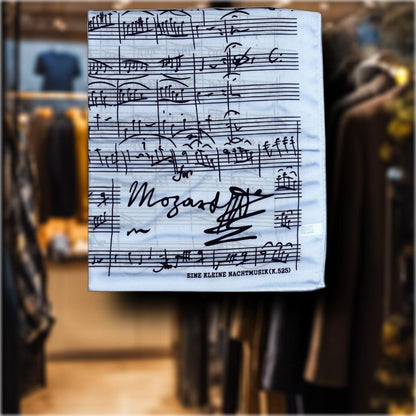 Mozart
EINE KLEINE NACHTMUSIK(K.525)